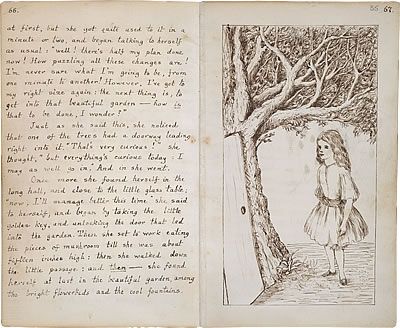 66.
at first, but she got quite used to it in a
minute or two, and began talking to herself
as usual: "well! there's half my plan done
now! How puzzling all these changes are!
I'm never sure what I'm going to be, from
one minute to another! However, I've got to
my right size again: the next thing is, to
get into that beautiful garden — how is
that to be done, I wonder?"
Just as she said this, she noticed
that one of the trees had a doorway leading
right into it. "That's very curious!" she
thought, "but everything's curious today: I
may as well go in," And in she went.
Once more she found herself in the
long hall, and close to the little glass table:
"now, I'll manage better this time" she said
to herself, and began by taking the little
golden key, and unlocking the door that led
into the garden. Then she set to work eating
the pieces of mushroom till she was about
fifteen inches high: then she walked down
the little passage: and then — she found
herself at last in the beautiful garden, among
the bright flowerbeds and the cool fountains.
67.